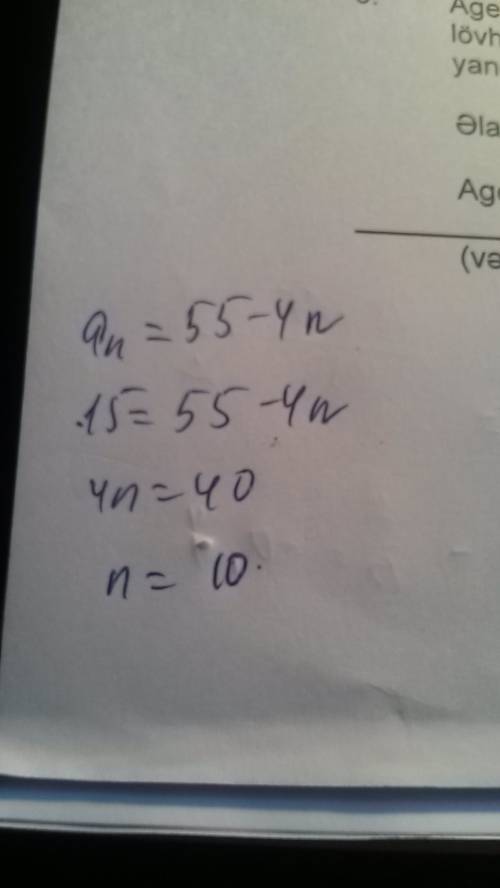 Age
lövh
yan
Əla
Age
(və
aₙ = 55 - 4n
15 = 55 - 4n
4n = 40
n = 10.